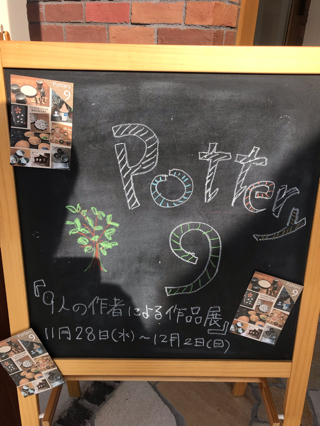 Pottery
9
『9人の作者による作品展』
11月28日(水)～12月2日(日)
9
9